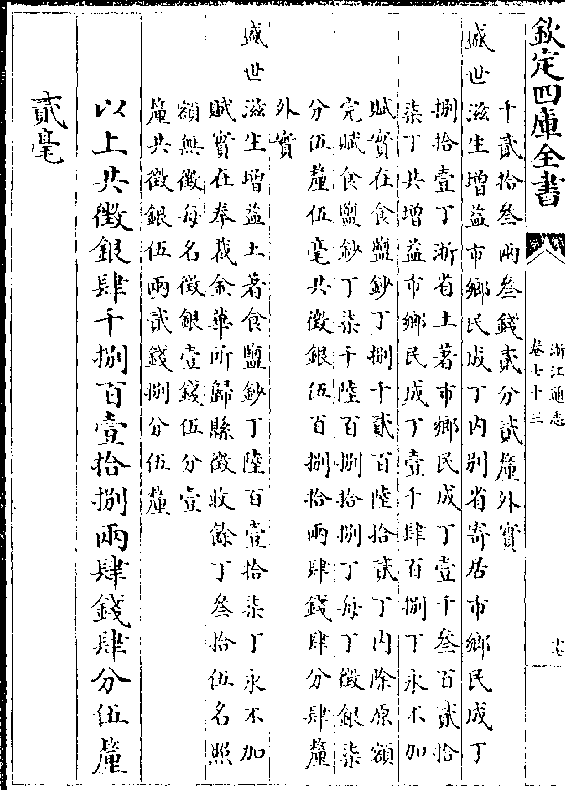 欽定四庫全書
浙江通志
卷七十三
十貳拾叁兩叁錢貳分貳釐外實
盛世滋生增益市鄉民成丁内别省寄居市鄉民成丁
捌拾壹丁浙省土著市鄉民成丁壹千叁百貳拾
柒丁共增益市鄉民成丁壹千肆百捌丁永不加
賦實在食鹽鈔丁捌千貳百陸拾貳丁内除原額
完賦食鹽鈔丁柒千陸百捌拾捌丁每丁徵銀柒
分伍釐伍毫共徵銀伍百捌拾兩肆錢肆分肆釐
外實
盛世滋生增益土著食鹽鈔丁陸百壹拾柒丁永不加
賦實在奉裁金華所歸縣徵收餘丁叁拾伍名照
額無徵每名徵銀壹錢伍分壹
釐共徵銀伍兩貳錢捌分伍釐
以上共徵銀肆千捌百壹拾捌兩肆錢肆分伍釐
貳毫